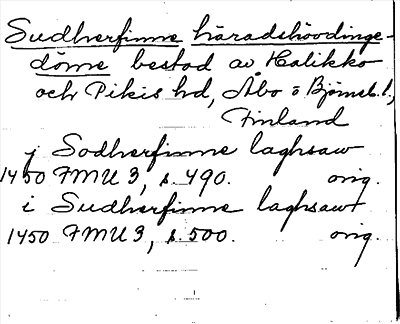 Sudherfinne häradshövdinge-
döme bestod av Halikko
och Pikis hd, Åbo o Björneb. l.,
Finland
j Sodherfinne laghsaw
1450 FMU 3, s. 490. orig.
i Sudherfinne laghsawt
1450 FMU 3, s. 500. orig.